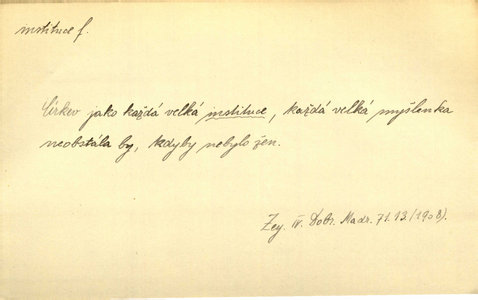 instituce f.
Církev jako každá velká instituce, každá velká myšlenka
neobstála by, kdyby nebylo žen.
Zey. IV. Dobr. Madz. 71.13 (1908).